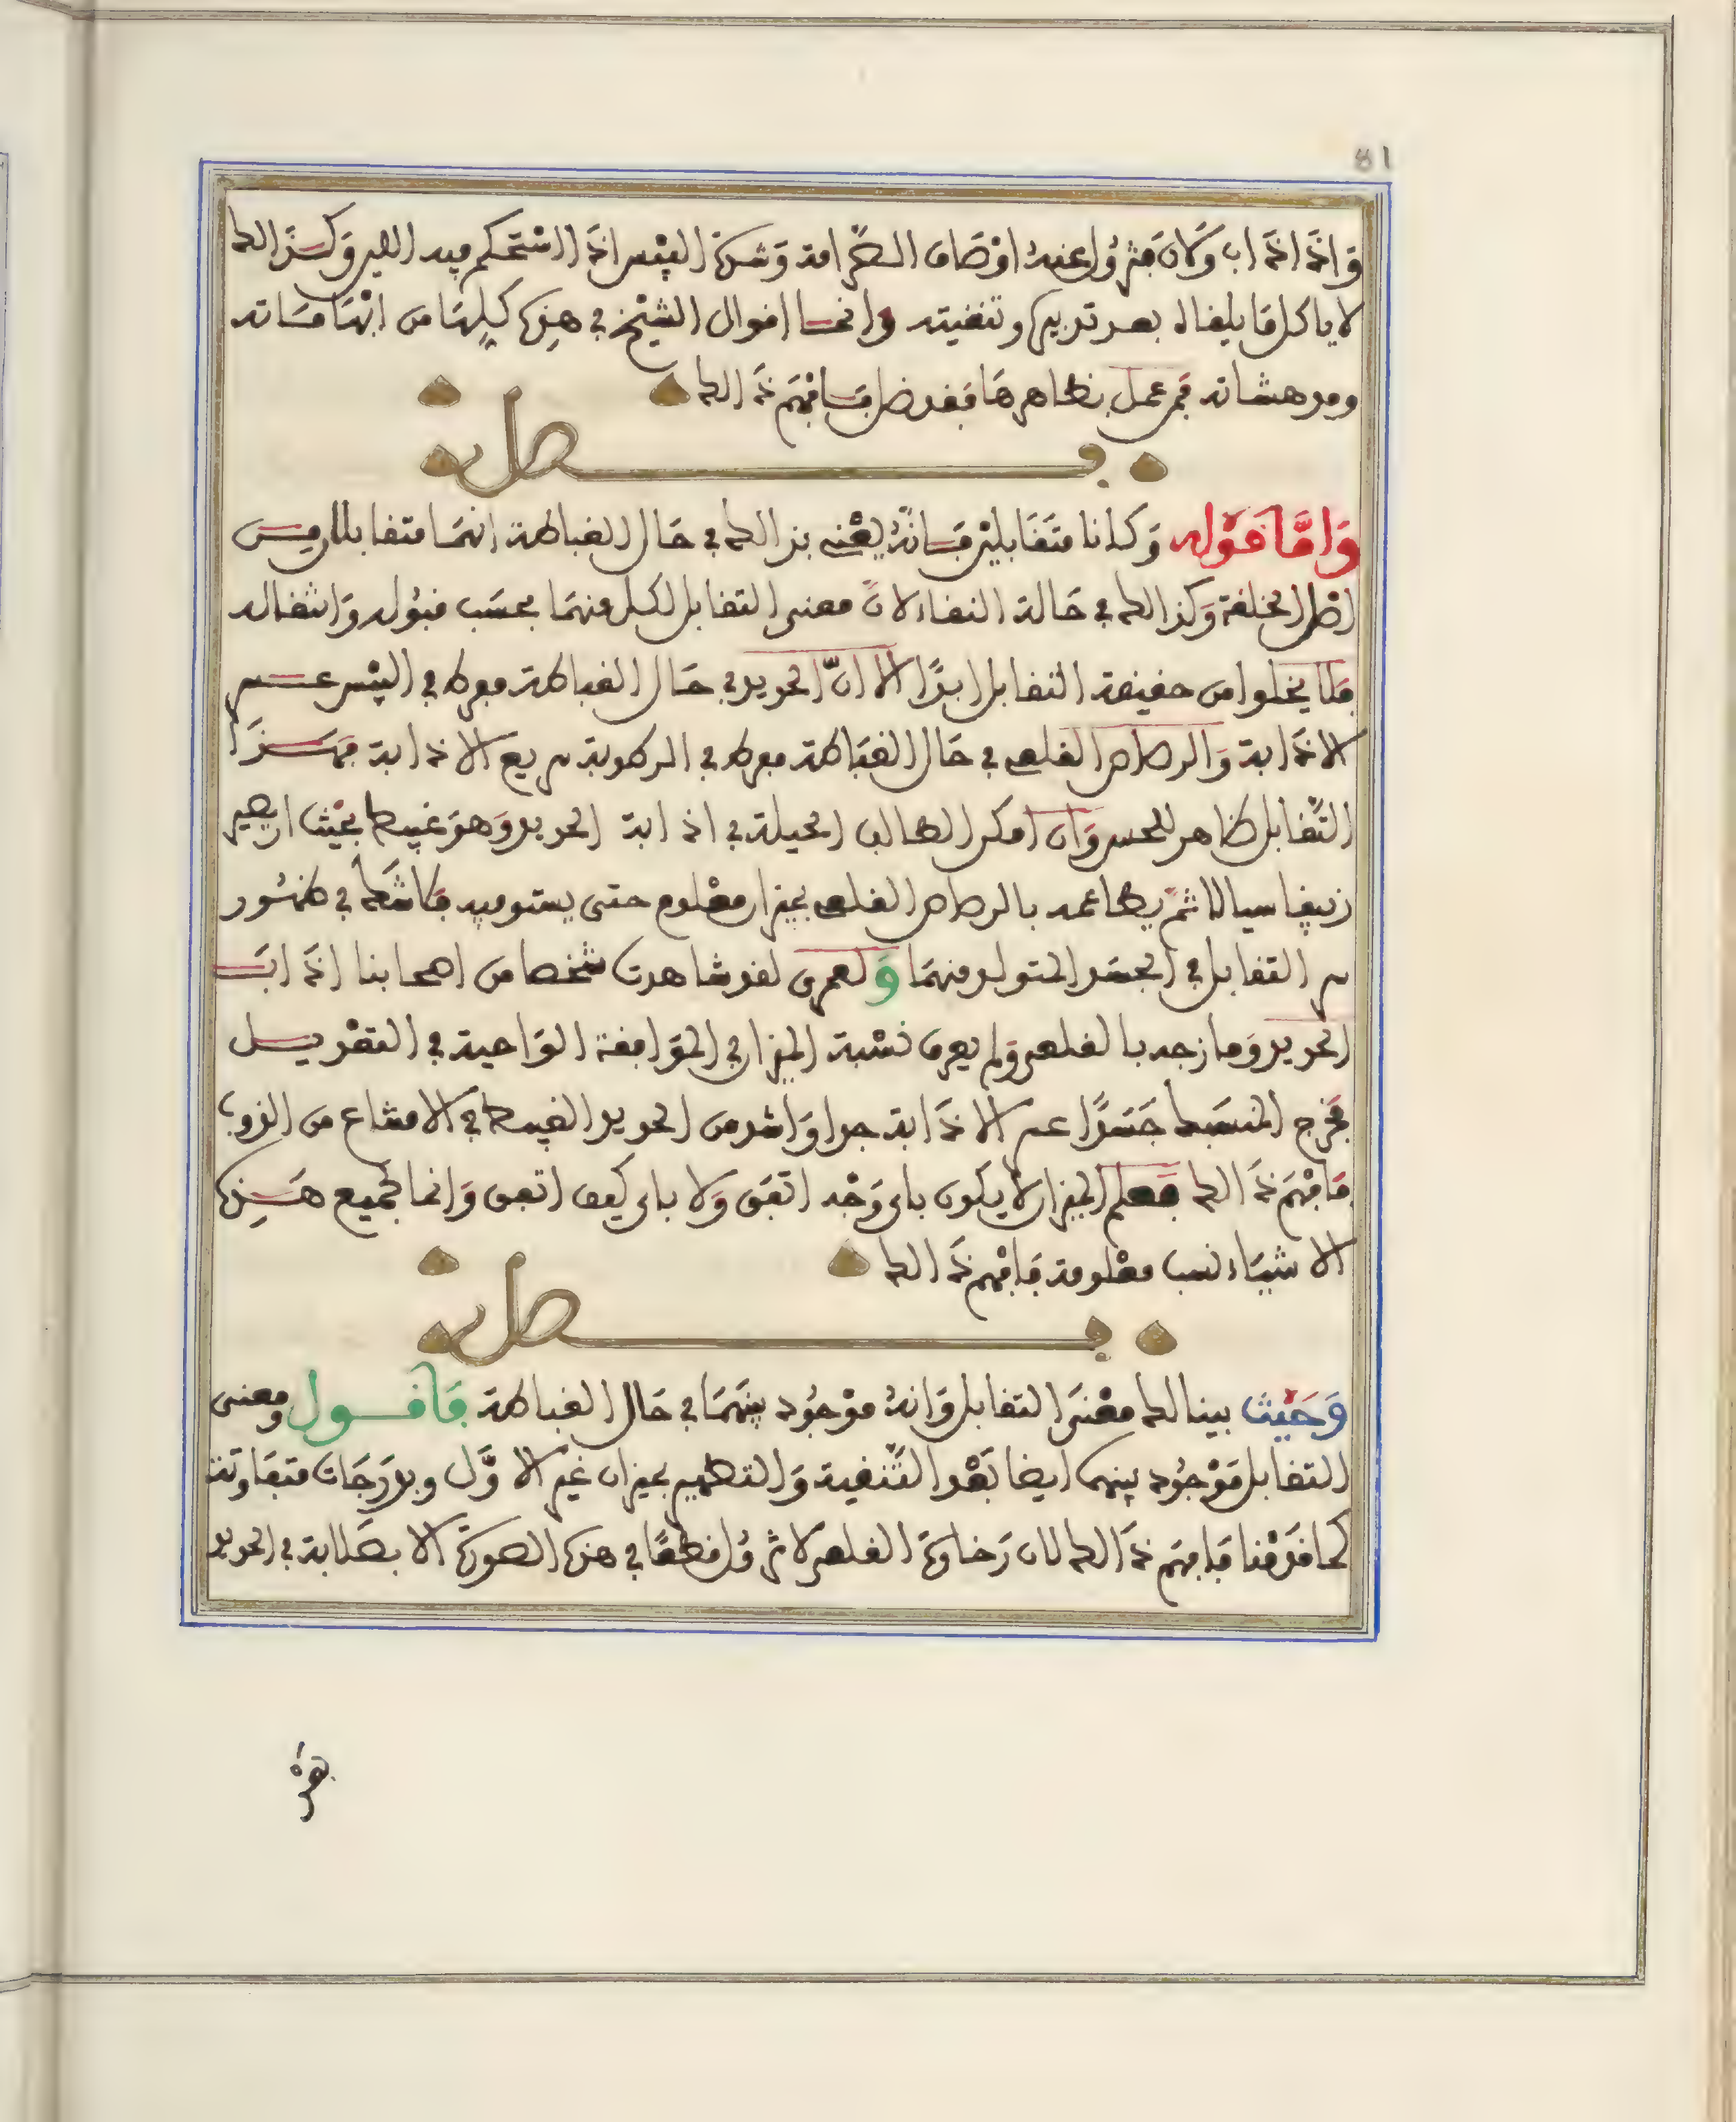 81
وَاذَا اذَاب وَلَانَ فتزُول عنهُ اوْصَاف الصَّرامة وَشدة اليُبْس اذَا اسْتحكم فيه اللين وكذَالك
لا ياكل ما يلقاه بعد تدبيره وتنقيته وانما اقوال الشيْخ في هذِه كلِهَا من ابْهَامَاته
ومدهشاته فمن عمل بظاهرهَا فقد ضل فَافْهَم ذَالك
فصل
وَامَّا قوْله وَكانا متَقَابليْن فَانهُ يعْني بذالك في حَال الغباطة انهمَا متقابلان من
اصْل الخلقة وَكذالك في حَالة النقاء لانَّ معنى التقابل لكل منهمَا بحسَب قبوُله وَانتقاله
فلا يخلوا من حقيقة التقابل ابدًا الا انّ الحديد في حَال الغباطة مفرط في اليُبْس عسر
الاذَابة وَالرصاص القلعي في حَال الغبَاطة مفرط في الرطوبة سريع الاذابة فهَذَا
التَّقابل ظاهر للحس وَان امكن الطالب الحيلة في اذابة الحديد وَهوَ غبيط بحيْث ان يصير
زيبقا سيالا ثمَّ يطاعمه بالرصاص القلعي بميزان معْلوم حتى يستوفيه فلا شَك في ظهُور
سر التقابل في الجسَد المتولد منهمَا وَلعمري لقد شاهدت شخصا من اصحابنا اذَاب
الحديد وَمازجه بالقلعي وَلم يعرف نسْبة الميزان في الموَافقة الوَاجبة في التعْديل
فخرج المنسَبك جَسَدًا عسر الاذَابة جدا وَاشد من الحديد الغبيط في الامتناع من الذوب
فَافْهَم ذَالك فعلم الميزان لا يكون باي وَجْه اتفَق وَلا باي كيف اتفق وَانما لجميع هَذِه
الاشيَاء نسب معْلومة فَافْهم ذَالك
فصل
وَحَيْث بينا لك معْنَى التقابل وَانهُ موْجُود بينهمَا في حَال الغباطة فَاقول ومعنى
التقابل موْجُود بينهما ايضا بَعْد التَّنْقية وَالتطهير بميزان غيْر الاوَّل وبدرَجَات متفَاوتة
كما قدمْنا فَافهَم ذَالك لان رَخاوة القلعي لا تزُول قطعًا في هذه الصورَة الا بصَلابة في الحديد